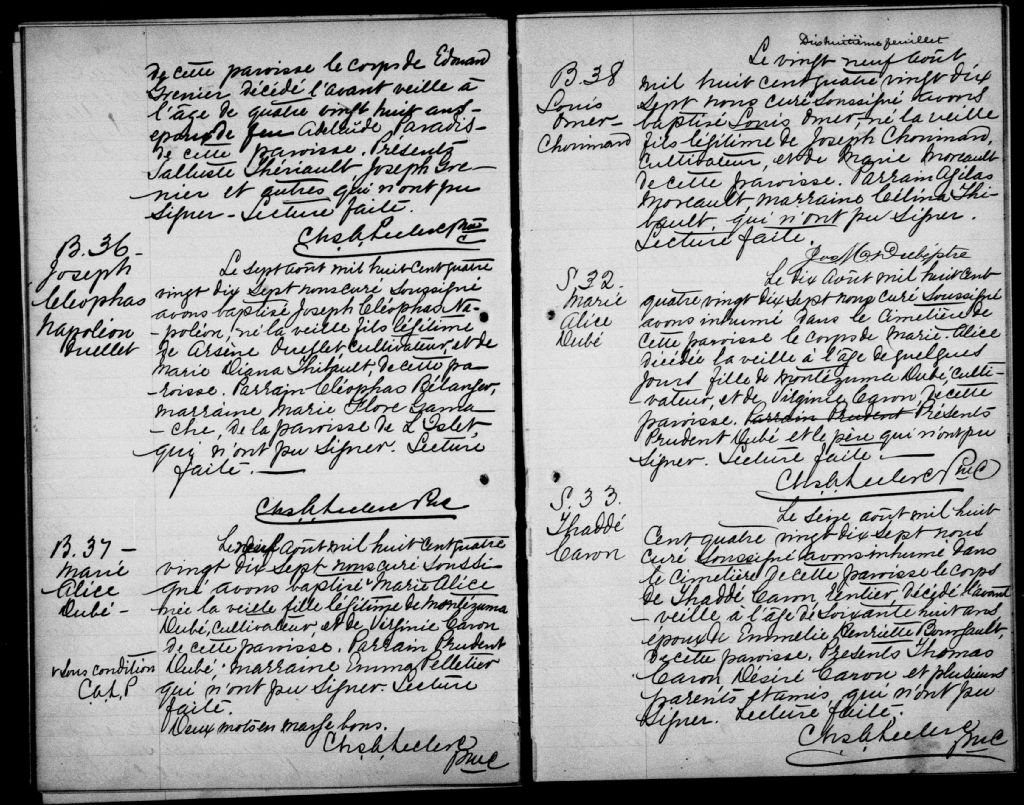 de cette paroisse le corps de Edouard
Grenier décédé l'avant veille à
l'âge de quatre vingt huit ans-
epoux de feu Adelaide Paradis-
de cette paroisse. Présents
Salluste Thériault Joseph Gre-
nier et autres qui n'ont pu
signer - Lecture faite.
Chs. A. Leclerc Ptre C
B. 36 -
Joseph
Cléophas
Napoléon
Ouellet
Le sept août mil huit cent quatre
vingt dix sept nous curé soussigné
avons baptisé Joseph Cléophas Na-
poléon, né la veille fils légitime
de Arsène Ouellet cultivateur, et de
Marie Diana Thibault, de cette pa-
roisse. Parrain Cléophas Bélanger,
marraine Marie Flore Gama-
-che, de la paroisse de L'Islet
qui n'ont pu signer. Lecture
faite. —
Chs. A. Leclerc Ptre C
B. 37 -
Marie
Alice
Dubé -
v sous condition
C.A.L. P
Le neuf Août mil huit cent quatre
vingt dix sept nous curé soussi-
gné avons baptisé v Marie Alice
née la veille fille légitime de Montézuma
Dubé, cultivateur, et de Virginie Caron
de cette paroisse. Parrain Prudent
Dubé; marraine Emma Pelletier
qui n'ont pu signer. Lecture
faite.
Deux mots en marge bons.
Chs. A. Leclerc
Ptre C
Dixhuitième feuillet
B. 38
Louis
Omer-
Chouinard
Le vingt neuf août
mil huit cent quatre vingt dix
sept nous curé soussigné avons
baptisé Louis Omer, né la veille
fils légitime de Joseph Chouinard,
cultivateur, et de Marie Moreault
de cette paroisse. Parrain Agilas
Moreault marraine Célina Thi-
bault, qui n'ont pu signer.
Lecture faite.
Jos M
S. 32 -
Marie
Alice
Dubé
Le dix Août mil huit cent
quatre vingt dix sept nous curé soussigné
avons inhumé dans le cimetière de
cette paroisse le corps de Marie-Alice
décédée la veille à l'âge de quelques
jours fille de Montézuma Dubé, culti-
vateur, et de Virginie Caron, de cette
paroisse. Parrain Prudent Présents
Prudent Dubé et le père qui n'ont pu
signer. Lecture faite —
Chs. A. Leclerc Ptre C
S. 33.
Thaddé
Caron
Le seize août mil huit
cent quatre vingt dix sept nous
curé soussigné avons inhumé dans
le cimetière de cette paroisse le corps
de Thaddé Caron, rentier, décédé l'avant
-veille, à l'âge de soixante huit ans
epoux de Emmelie Henriette Bourgault,
de cette paroisse. Présents Thomas
Caron Désiré Caron et plusieurs
parents et amis, qui n'ont pu
signer. Lecture faite.
Chs. A. Leclerc
Ptre C